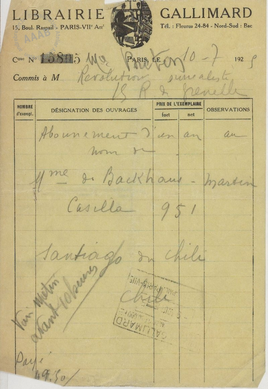 LIBRAIRIE GALLIMARD
15, Boul. Raspail - PARIS-VIIe Arrt
Tél. : Fleurus 24-84 - Nord-Sud : Bac
Cde No 15895 PARIS, LE 10-7 192
Commis à M Révolution surréaliste
15 R de Grenelle
NOMBRE d'exempl. DÉSIGNATION DES OUVRAGES PRIX DE L'EXEMPLAIRE OBSERVATIONS
fort net
Abonnement d'un an au
nom de
Mme de Backhaus - Martin
Casilla 951
Santiago du Chili
Chili
GALLIMARD
avant
Payé
49.50